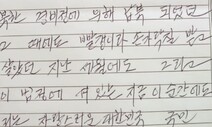 북한 경비정에 의해 납북 되었던
그 때에도 빨갱이라 손가락질 받고
살았던 지난 세월에도 그리고
이 법정에 서 있는 지금 이 순간에도
저는 자랑스러운 대한민국 국민